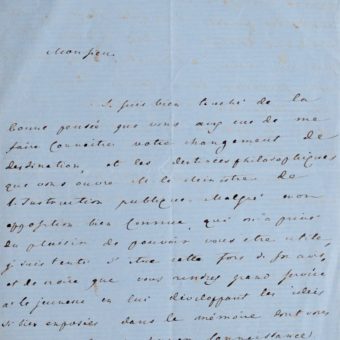 Monsieur.
Je suis bien touché de la
bonne pensée que vous avez eue de me
faire connaitre votre changement de
destination, et les destinées philosophiques
que vous ouvre M. le Ministre de
l'Instruction publique. Malgré mon
opposition bien connue, qui m'a privé
du plaisir de pouvoir vous être utile,
je suis tenté d'être cette fois de son avis,
et de croire que vous rendrez grand service
à la jeunesse en lui développant les idées
si bien exposées dans le mémoire dont vous
connaissance